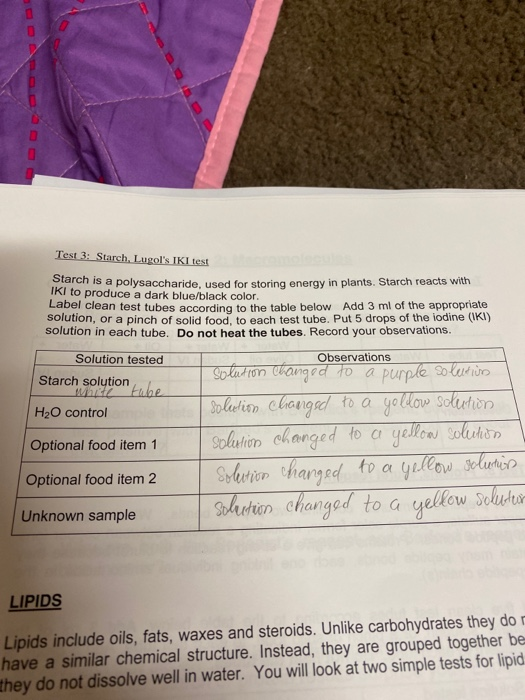 Test 3: Starch, Lugol's IKI test
Starch is a polysaccharide, used for storing energy in plants. Starch reacts with
IKI to produce a dark blue/black color.
Label clean test tubes according to the table below Add 3 ml of the appropriate
solution, or a pinch of solid food, to each test tube. Put 5 drops of the iodine (IKI)
solution in each tube. Do not heat the tubes. Record your observations.
Solution tested Observations
Starch solution Solution Changed to a purple solution
white tube
H₂O control Solution changed to a yollow solution
Optional food item 1 Solution changed to a yellow solution
Optional food item 2 Solution changed to a yellow solution
Unknown sample Solution changed to a yellow solution
LIPIDS
Lipids include oils, fats, waxes and steroids. Unlike carbohydrates they do
have a similar chemical structure. Instead, they are grouped together be
they do not dissolve well in water. You will look at two simple tests for lipid